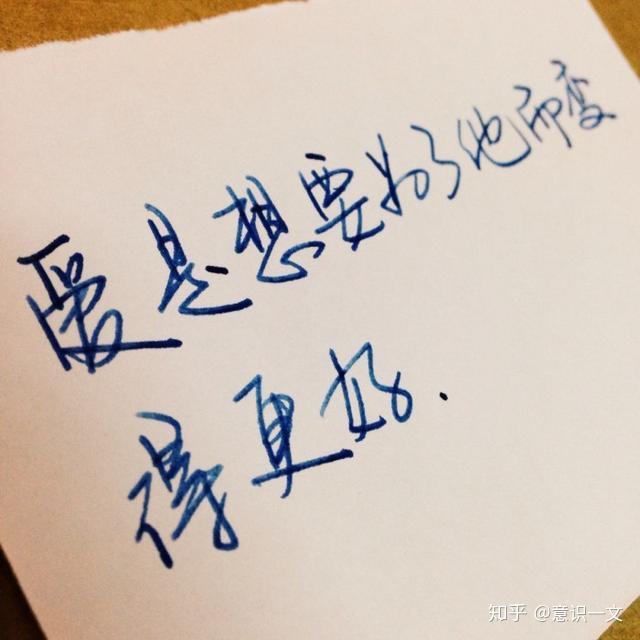 爱是想要为了他而变
得更好.
知乎 @意识一文